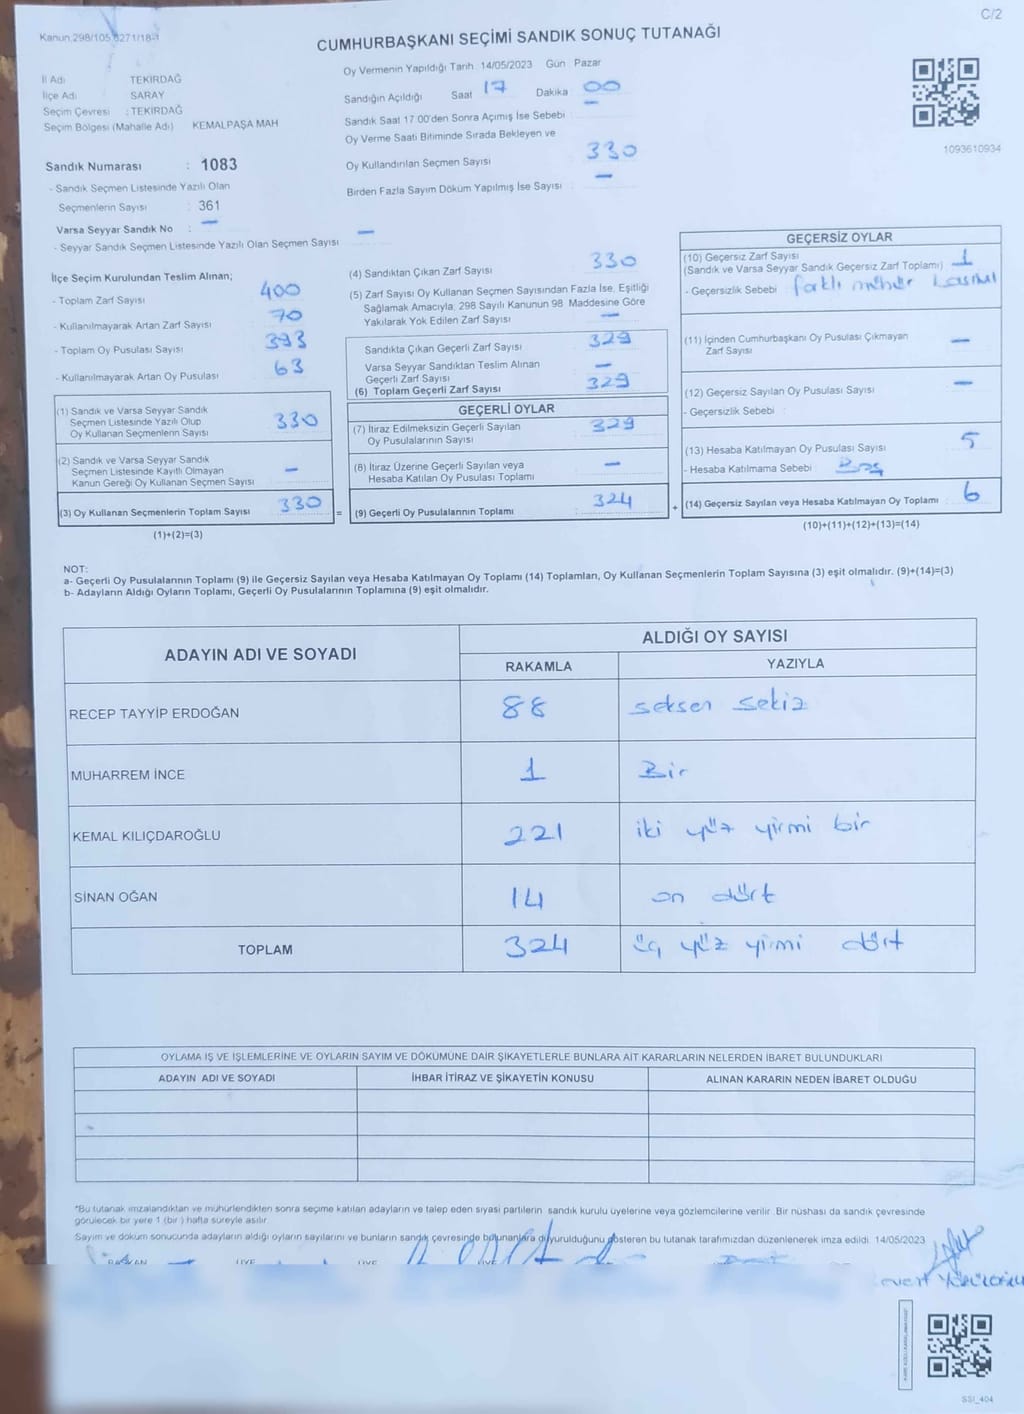 C/2
Kanun.298/105,6271/18-1
CUMHURBAŞKANI SEÇİMİ SANDIK SONUÇ TUTANAĞI
İl Adı : TEKİRDAĞ
İlçe Adı : SARAY
Seçim Çevresi : TEKİRDAĞ
Seçim Bölgesi (Mahalle Adı) KEMALPAŞA MAH
Oy Vermenin Yapıldığı Tarih 14/05/2023 Gün : Pazar
Sandığın Açıldığı Saat 17 Dakika 00
Sandık Saat 17 00'den Sonra Açımış İse Sebebi : –
Oy Verme Saati Bitiminde Sırada Bekleyen ve
Oy Kullandırılan Seçmen Sayısı 330
Birden Fazla Sayım Döküm Yapılmış İse Sayısı : –
1093610934
Sandık Numarası : 1083
- Sandık Seçmen Listesinde Yazılı Olan
Seçmenlerin Sayısı : 361
Varsa Seyyar Sandık No : –
- Seyyar Sandık Seçmen Listesinde Yazılı Olan Seçmen Sayısı –
İlçe Seçim Kurulundan Teslim Alınan;
- Toplam Zarf Sayısı 400
- Kullanılmayarak Artan Zarf Sayısı 70
- Toplam Oy Pusulası Sayısı 393
- Kullanılmayarak Artan Oy Pusulası 63
(1) Sandık ve Varsa Seyyar Sandık
Seçmen Listesinde Yazılı Olup
Oy Kullanan Seçmenlerin Sayısı 330
(2) Sandık ve Varsa Seyyar Sandık
Seçmen Listesinde Kayıtlı Olmayan
Kanun Gereği Oy Kullanan Seçmen Sayısı –
(3) Oy Kullanan Seçmenlerin Toplam Sayısı 330
(1)+(2)=(3)
=
(4) Sandıktan Çıkan Zarf Sayısı 330
(5) Zarf Sayısı Oy Kullanan Seçmen Sayısından Fazla İse, Eşitliği
Sağlamak Amacıyla, 298 Sayılı Kanunun 98 Maddesine Göre
Yakılarak Yok Edilen Zarf Sayısı –
Sandıkta Çıkan Geçerli Zarf Sayısı 329
Varsa Seyyar Sandıktan Teslim Alınan
Geçerli Zarf Sayısı –
(6) Toplam Geçerli Zarf Sayısı 329
GEÇERLİ OYLAR
(7) İtiraz Edilmeksizin Geçerli Sayılan
Oy Pusulalarının Sayısı 329
(8) İtiraz Üzerine Geçerli Sayılan veya
Hesaba Katılan Oy Pusulası Toplamı –
(9) Geçerli Oy Pusulalarının Toplamı 324
+
GEÇERSİZ OYLAR
(10) Geçersiz Zarf Sayısı 1
(Sandık ve Varsa Seyyar Sandık Geçersiz Zarf Toplamı)
- Geçersizlik Sebebi : farklı mühür
(11) İçinden Cumhurbaşkanı Oy Pusulası Çıkmayan
Zarf Sayısı –
(12) Geçersiz Sayılan Oy Pusulası Sayısı –
- Geçersizlik Sebebi :
(13) Hesaba Katılmayan Oy Pusulası Sayısı 5
- Hesaba Katılmama Sebebi Boş
(14) Geçersiz Sayılan veya Hesaba Katılmayan Oy Toplamı 6
(10)+(11)+(12)+(13)=(14)
NOT:
a- Geçerli Oy Pusulalarının Toplamı (9) ile Geçersiz Sayılan veya Hesaba Katılmayan Oy Toplamı (14) Toplamları, Oy Kullanan Seçmenlerin Toplam Sayısına (3) eşit olmalıdır. (9)+(14)=(3)
b- Adayların Aldığı Oyların Toplamı, Geçerli Oy Pusulalarının Toplamına (9) eşit olmalıdır.
ADAYIN ADI VE SOYADI ALDIĞI OY SAYISI
RAKAMLA YAZIYLA
RECEP TAYYİP ERDOĞAN 88 seksen sekiz
MUHARREM İNCE 1 Bir
KEMAL KILIÇDAROĞLU 221 iki yüz yirmi bir
SİNAN OĞAN 14 on dört
TOPLAM 324 üç yüz yirmi dört
OYLAMA İŞ VE İŞLEMLERİNE VE OYLARIN SAYIM VE DÖKÜMÜNE DAİR ŞİKAYETLERLE BUNLARA AİT KARARLARIN NELERDEN İBARET BULUNDUKLARI
ADAYIN ADI VE SOYADI İHBAR İTİRAZ VE ŞİKAYETİN KONUSU ALINAN KARARIN NEDEN İBARET OLDUĞU
*Bu tutanak imzalandıktan ve mühürlendikten sonra seçime katılan adayların ve talep eden siyasi partilerin sandık kurulu üyelerine veya gözlemcilerine verilir. Bir nüshası da sandık çevresinde
görülecek bir yere 1 (bir ) hafta süreyle asılır.
Sayım ve döküm sonucunda adayların aldığı oyların sayılarını ve bunların sandık çevresinde bulunanlara duyurulduğunu gösteren bu tutanak tarafımızdan düzenlenerek imza edildi. 14/05/2023
ÜYE ÜYE ÜYE
SSI_404